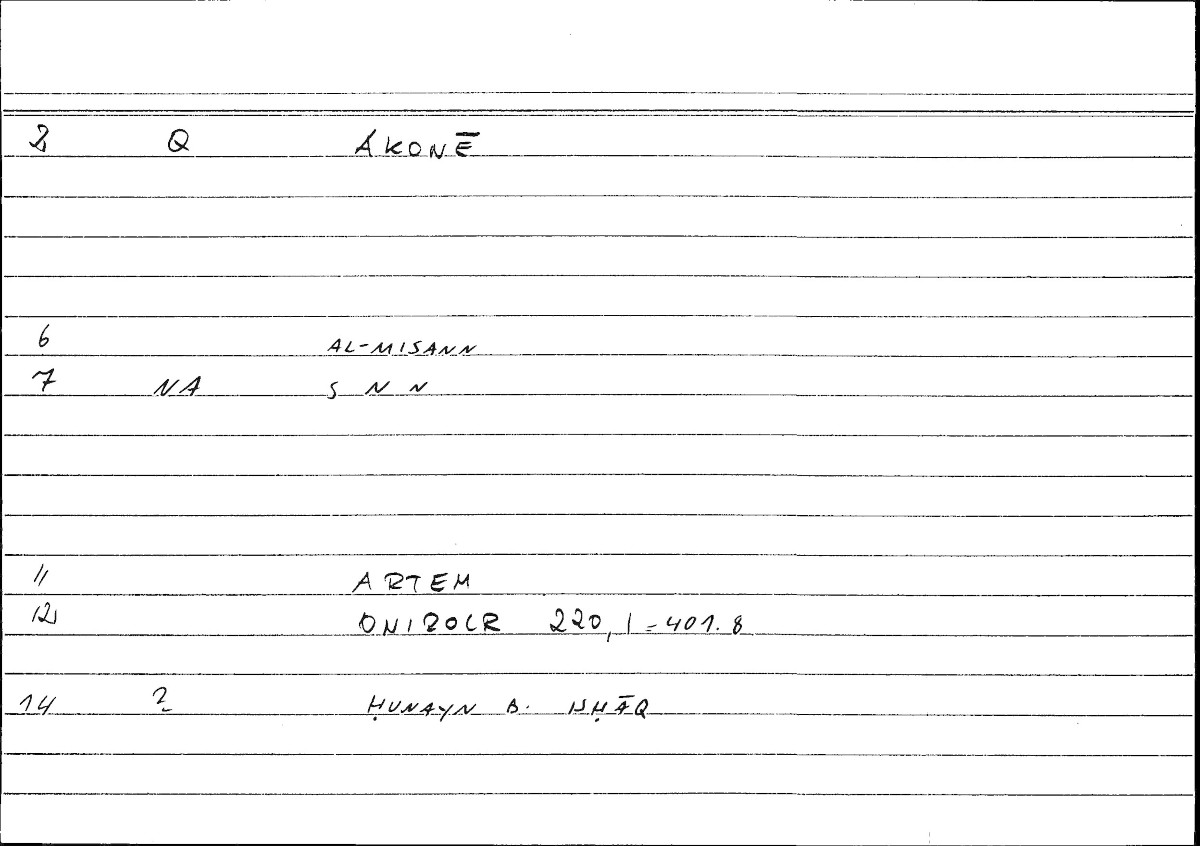 2 Q ÁKONĒ
6 AL-MISANN
7 NA S N N
11 ARTEM
12 ONIROCR 220,1=401.8
14 2 ḤUNAYN B. ISḤĀQ